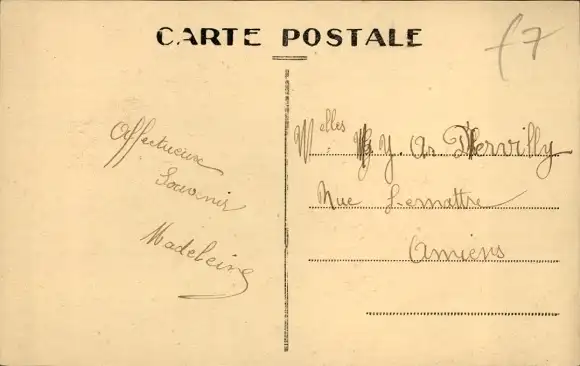 CARTE POSTALE
f7
Affectueux
Souvenir
Madeleine
Melles Y. A. Dervilly
Rue Lemattre
Amiens